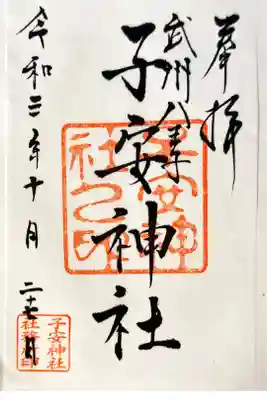 奉拝
武州八王子
子安神社
令和三年十月二十七日
子安神
社之印
子安神社
社務所印